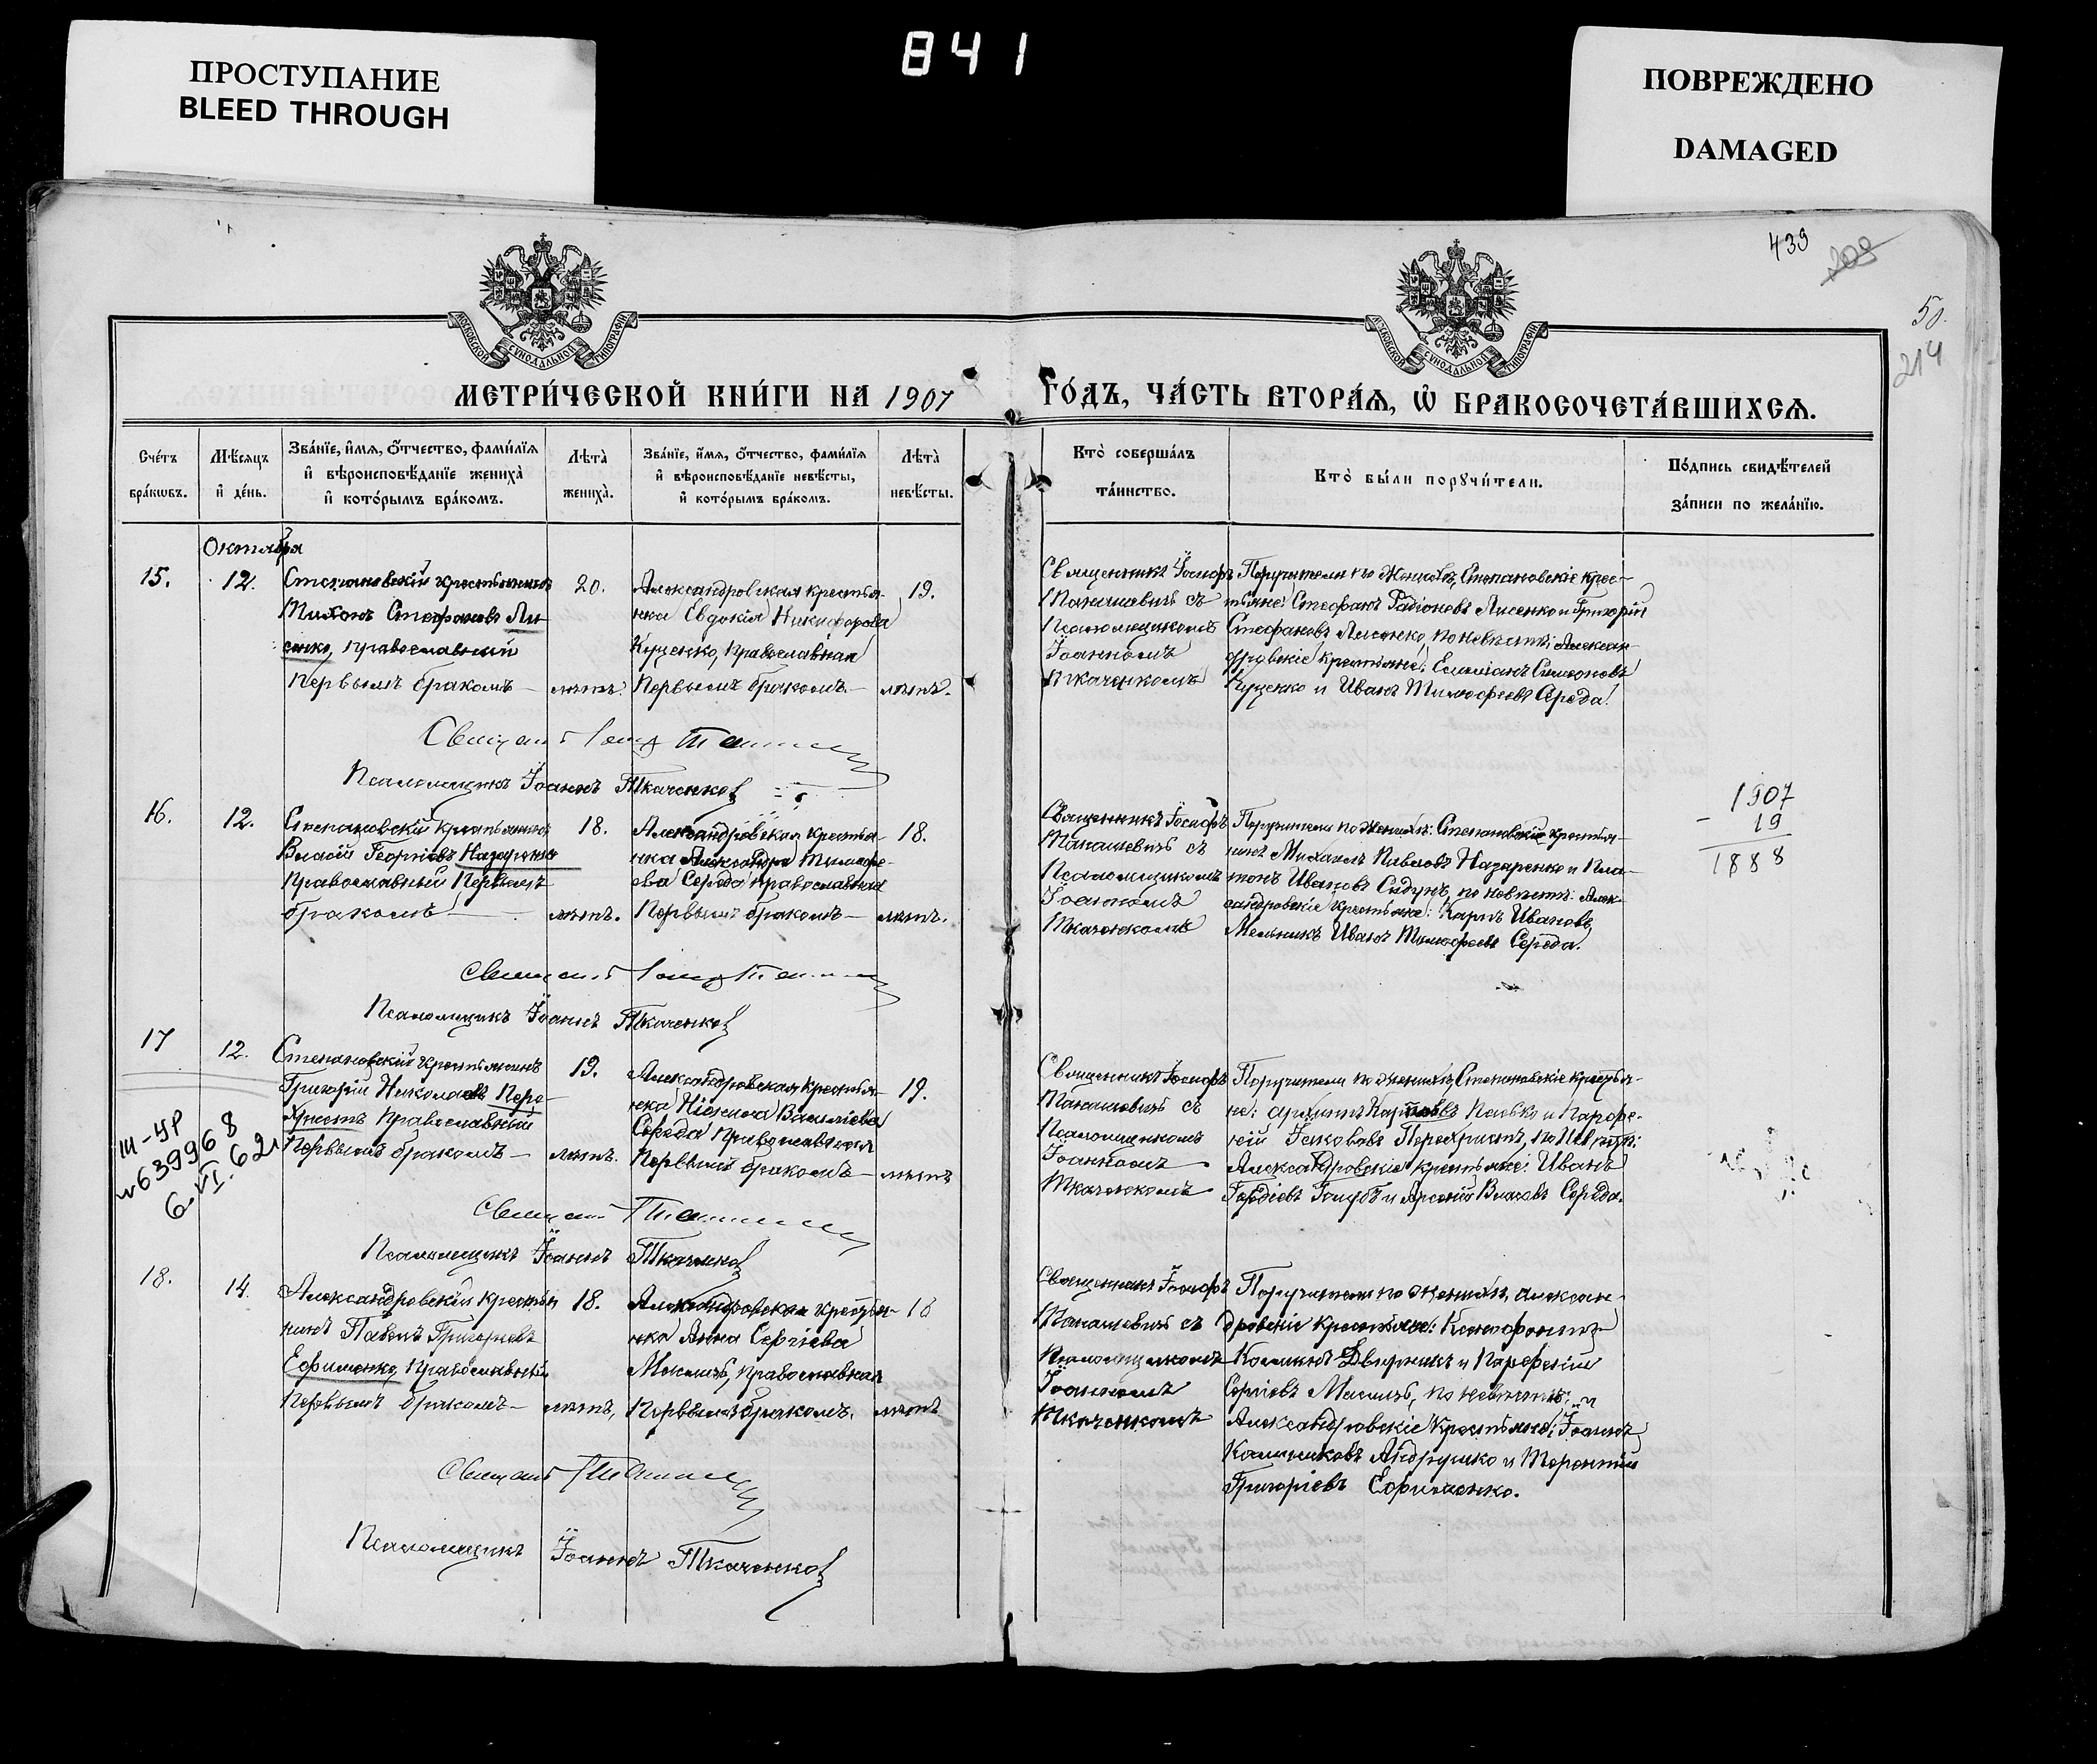 ПРОСТУПАНИЕ
BLEED THROUGH
841
ПОВРЕЖДЕНО
DAMAGED
439
209
50.
214
МОСКОВСКОЙ СѴНОДАЛЬНОЙ ТИПОГРАФІИ
МОСКОВСКОЙ СѴНОДАЛЬНОЙ ТИПОГРАФІИ
МЕТРИ́ЧЕСКОЙ КНИ́ГИ НА 1907
ГО́ДЪ, ЧА́СТЬ ВТОРА́Ѧ, Ѽ БРАКОСОЧЕТА́ВШИХСѦ.
Сче́тъ
бра́кѡвъ.
Мѣ́сѧцъ
и҆ де́нь.
Зва́нїе, и҆́мѧ, ѻ҆́тчество, фами́лїѧ
и҆ вѣроисповѣ́данїе жениха̀
и҆ кото́рымъ бра́комъ.
Лѣта̀
жениха̀.
Зва́нїе, и҆́мѧ, ѻ҆́тчество, фами́лїѧ
и҆ вѣроисповѣ́данїе невѣ́сты,
и҆ кото́рымъ бра́комъ.
Лѣта̀
невѣ́сты.
Кто̀ соверша́лъ
та́инство.
Кто̀ бы́ли порꙋчи́тели.
По́дпись свидѣ́телей
за́писи по жела́нїю.
Октября
15.
12.
Степановскій крестьянинъ
Тихонъ Стефановъ Ли-
сенко, православный
Первымъ бракомъ—
20.
лѣтъ.
Александровская крестья-
нка Евдокія Никифорова
Куценко, православная
Первымъ бракомъ—
19.
лѣтъ.
Священникъ Іосифъ
Танашевичъ съ
Псаломщикомъ
Іоанномъ
Ткаченкомъ
Поручители по женихѣ, Степановскіе крес-
тьяне: Стефанъ Радіоновъ Лисенко и Григорій
Стефановъ Лисенко, по невѣстѣ; Алексан-
дровскіе крестьяне: Емеліанъ Симеоновъ
Куценко и Иванъ Тимофеевъ Середа.
Псаломщикъ Іоаннъ Ткаченко
16.
12.
Степановскій крестьянинъ
Власій Георгіевъ Назаренко
Православный Первымъ
бракомъ—
18.
лѣтъ.
Александровская крестья-
нка Александра Тимофе-
ева Середа православная
Первымъ бракомъ—
18.
лѣтъ.
Священникъ Іосифъ
Танашевичъ съ
Псаломщикомъ
Іоанномъ
Ткаченкомъ
Поручители по женихѣ: Степановскіе крестья-
нинъ Михаилъ Павловъ Назаренко и Пла-
тонъ Ивановъ Сидунъ, по невѣстѣ: Алек-
сандровскіе крестьяне: Карпъ Ивановъ
Мельникъ Иванъ Тимофеевъ Середа.
1907
- 19
1888
Псаломщикъ Іоаннъ Ткаченко
17
12.
Степановскій крестьянинъ
Григорій Николаевъ Пере-
христъ Православный
Первымъ бракомъ—
19.
лѣтъ.
Александровская крестья-
нка Васильева
Середа Православная
Первымъ бракомъ—
19.
лѣтъ
III-УР
№639968
6.VI.62г
Священникъ Іосифъ
Танашевичъ съ
Псаломщикомъ
Іоанномъ
Ткаченкомъ
Поручители по женихѣ, Степановскіе крестья-
не: Архипъ и Парфе-
ній Іаковлевъ Перехристъ, по невѣстѣ:
Александровскіе крестьяне: Иванъ
Гордіевъ Голубъ и Арсеній Власовъ Середа.
Псаломщикъ Іоаннъ Ткаченко
18.
14.
Александровскій крестья-
нинъ Павелъ Григорьевъ
Ефименко, Православный
Первымъ бракомъ—
18.
лѣтъ,
Александровская крестья-
нка Анна Сергіева
православная
Первымъ бракомъ.
лѣтъ
Священникъ Іосифъ
Танашевичъ съ
Псаломщикомъ
Іоанномъ
Ткаченкомъ
Поручители по женихѣ, Алексан-
дровскіе крестьяне: Ксенофонтъ
Дворникъ и Парфеній
Сергіевъ по невѣстѣ:
Александровскіе крестьяне: Іоаннъ
Калиниковъ Андрушко и Терентій
Григоріевъ Ефименко.
Псаломщикъ Іоаннъ Ткаченко